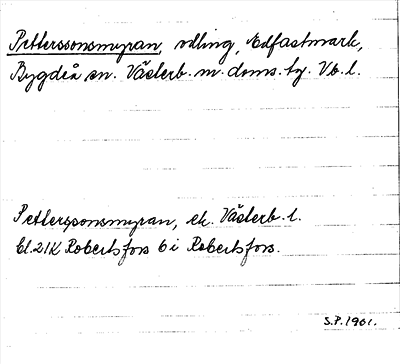 Petterssonsmyran, odling, Edfastmark,
Bygdeå sn. Västerb. m. doms. tg. Vb. l.
Petterssonsmyran, ek. Västerb. l.
bl. 21K Robertsfors 6 i Robertsfors.
S.P. 1961.